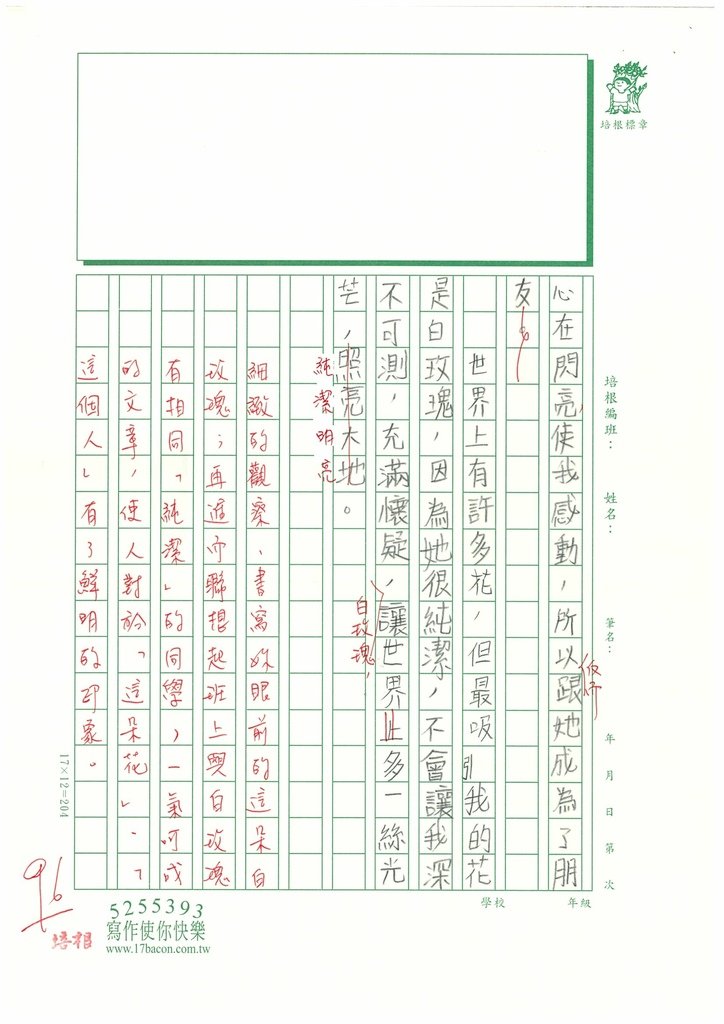 培根標章
培根編班：　姓名：　筆名：　年　月　日　第　次
學校　年級
心在閃亮，使我感動，所以跟她成為了朋
友。
世界上有許多花，但最吸引我的花
是白玫瑰，因為她很純潔，不會讓我深
不可測，充滿懷疑，讓世界上多一絲光
白玫瑰，
芒，照亮大地。
純潔明亮
細緻的觀察、書寫妳眼前的這朵白
玫瑰；再進而聯想起班上與白玫瑰
有相同「純潔」的同學，一氣呵成
的文章，使人對於「這朵花」、「
這個人」有了鮮明的印象。
17×12=204
96
培根
5255393
寫作使你快樂
www.17bacon.com.tw